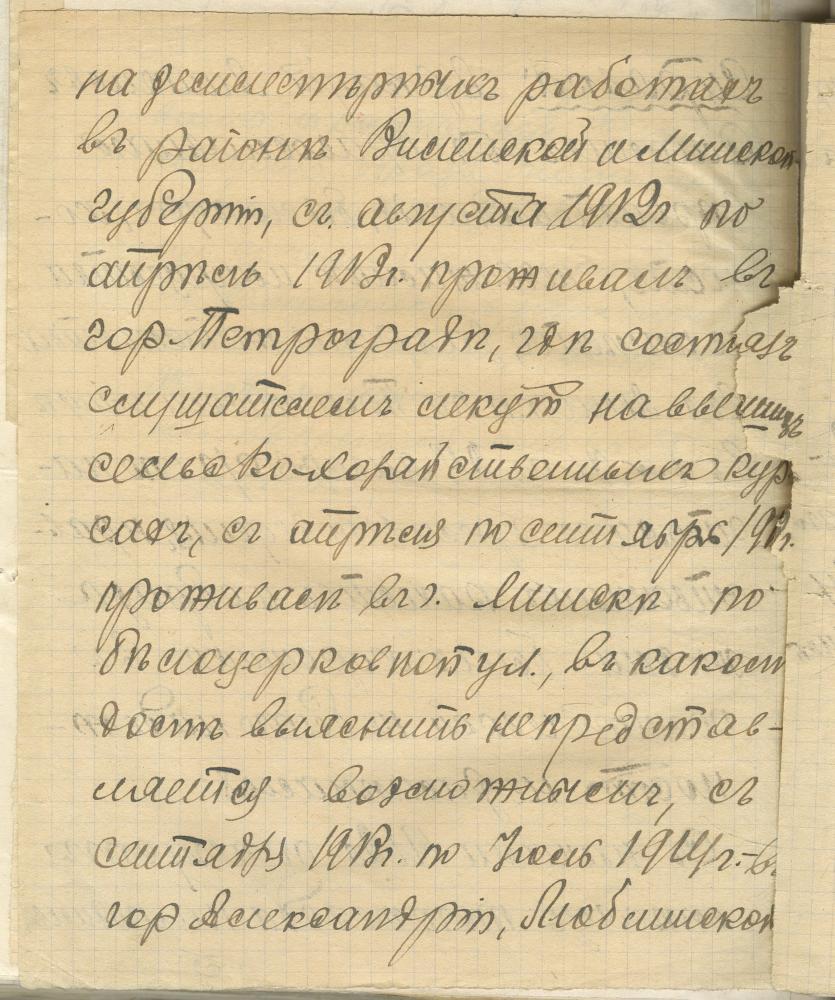 на землемѣрныхъ работахъ
въ районѣ Виленской и Минской
губерніи, съ августа 1912г по
апрѣль 1913г. проживалъ въ
гор Петроградѣ, гдѣ состоялъ
слушателемъ лекцій на высшихъ
сельско-хозяйственныхъ кур
сахъ, съ апрѣля по сентябрь 191г.
проживалъ въ г. Минскѣ по
Бѣлоцерковной ул., въ какомъ
домѣ выяснить непредстав-
ляется возможнымъ, съ
сентября 1913г. по Іюль 1914г.-въ
гор Александріи, Люблинской